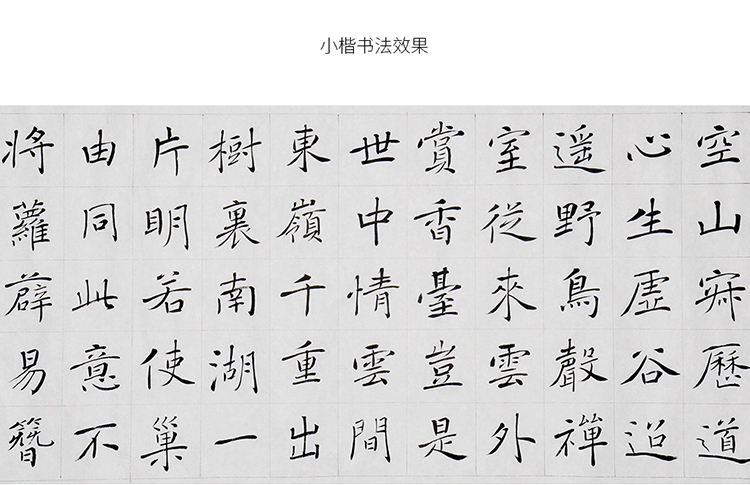 小楷书法效果
空山寂歷道
心生虛谷迢
遥野鳥聲禪
室從來雲外
賞香臺豈是
世中情雲間
東嶺千重出
樹裏南湖一
片明若使巢
由同此意不
將蘿薜易簪